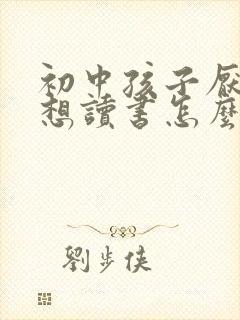 初中孩子厌
想讀書怎麼
劉步俠